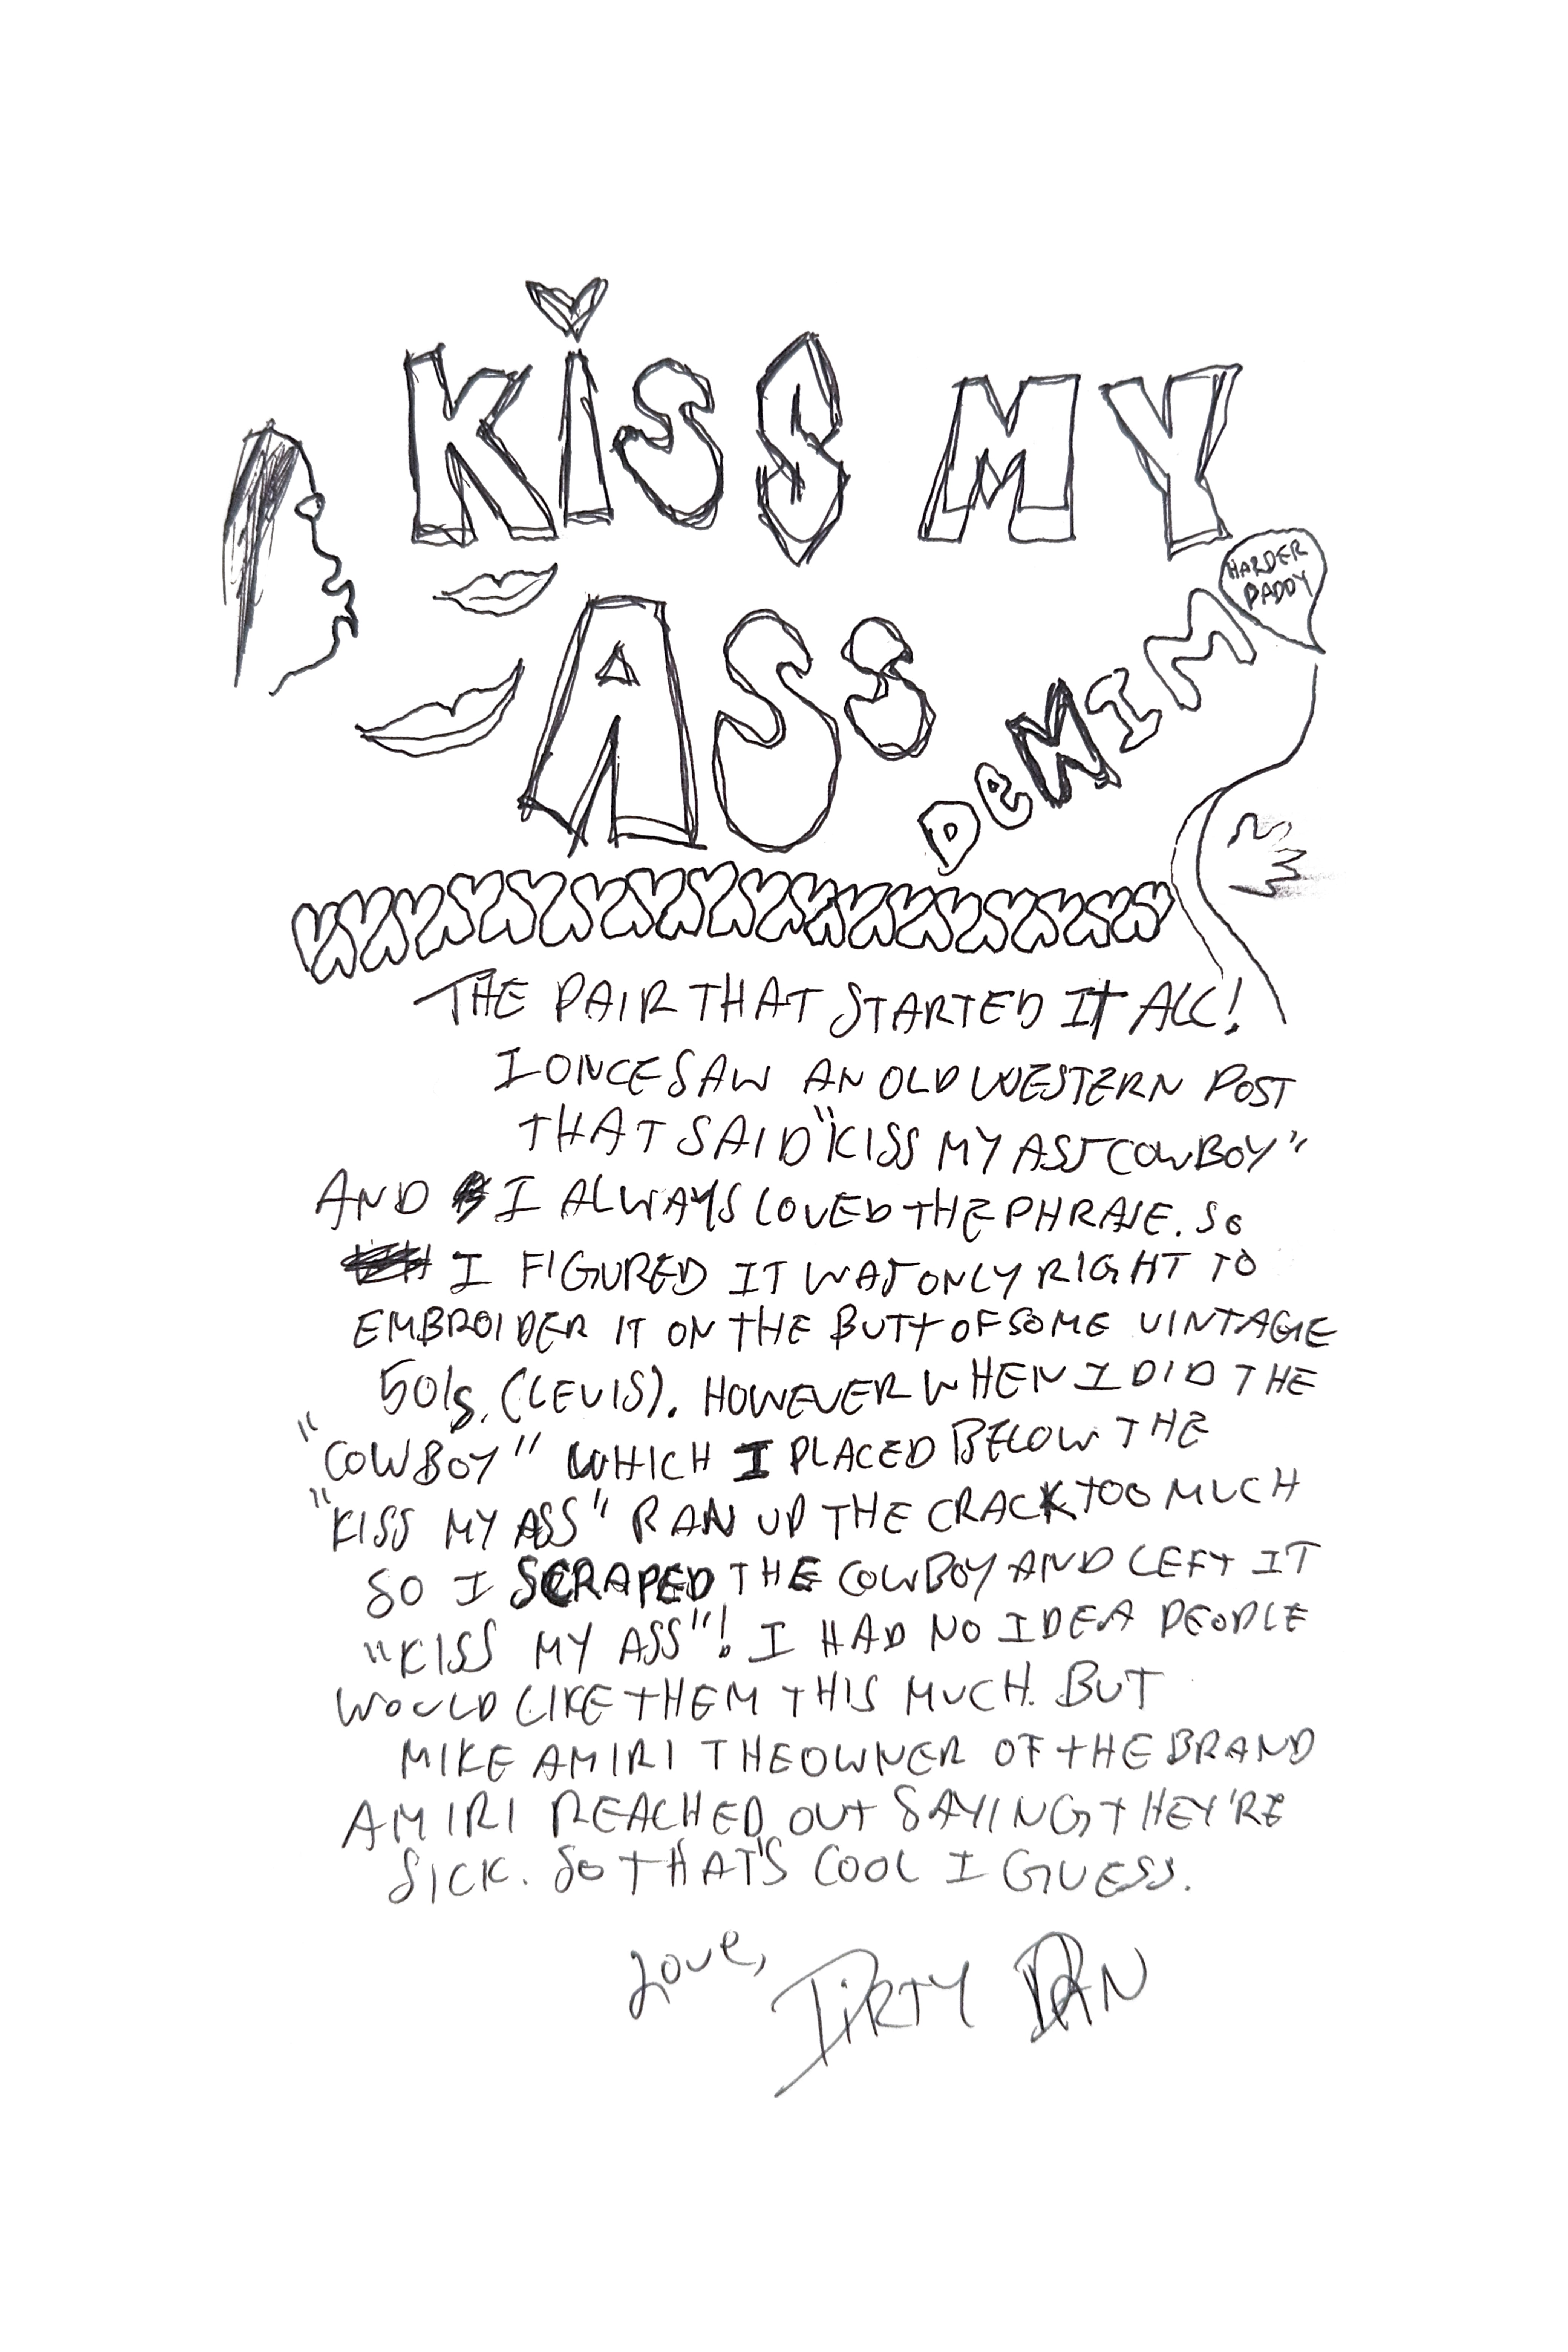 KiSS MY
ASS
DENIM
HARDER
DADDY
THE PAIR THAT STARTED IT ALL!
I ONCE SAW AN OLD WESTERN POST
THAT SAID "KISS MY ASS COWBOY"
AND I ALWAYS LOVED THE PHRASE. SO
I FIGURED IT WAS ONLY RIGHT TO
EMBROIDER IT ON THE BUTT OF SOME VINTAGE
501s. (LEVIS). HOWEVER WHEN I DID THE
"COWBOY" WHICH I PLACED BELOW THE
"KISS MY ASS" RAN UP THE CRACK TOO MUCH
SO I SCRAPED THE COWBOY AND LEFT IT
"KISS MY ASS"! I HAD NO IDEA PEOPLE
WOULD LIKE THEM THIS MUCH. BUT
MIKE AMIRI THE OWNER OF THE BRAND
AMIRI REACHED OUT SAYING THEY'RE
SICK. SO THAT'S COOL I GUESS.
Love, DiRTY DAN